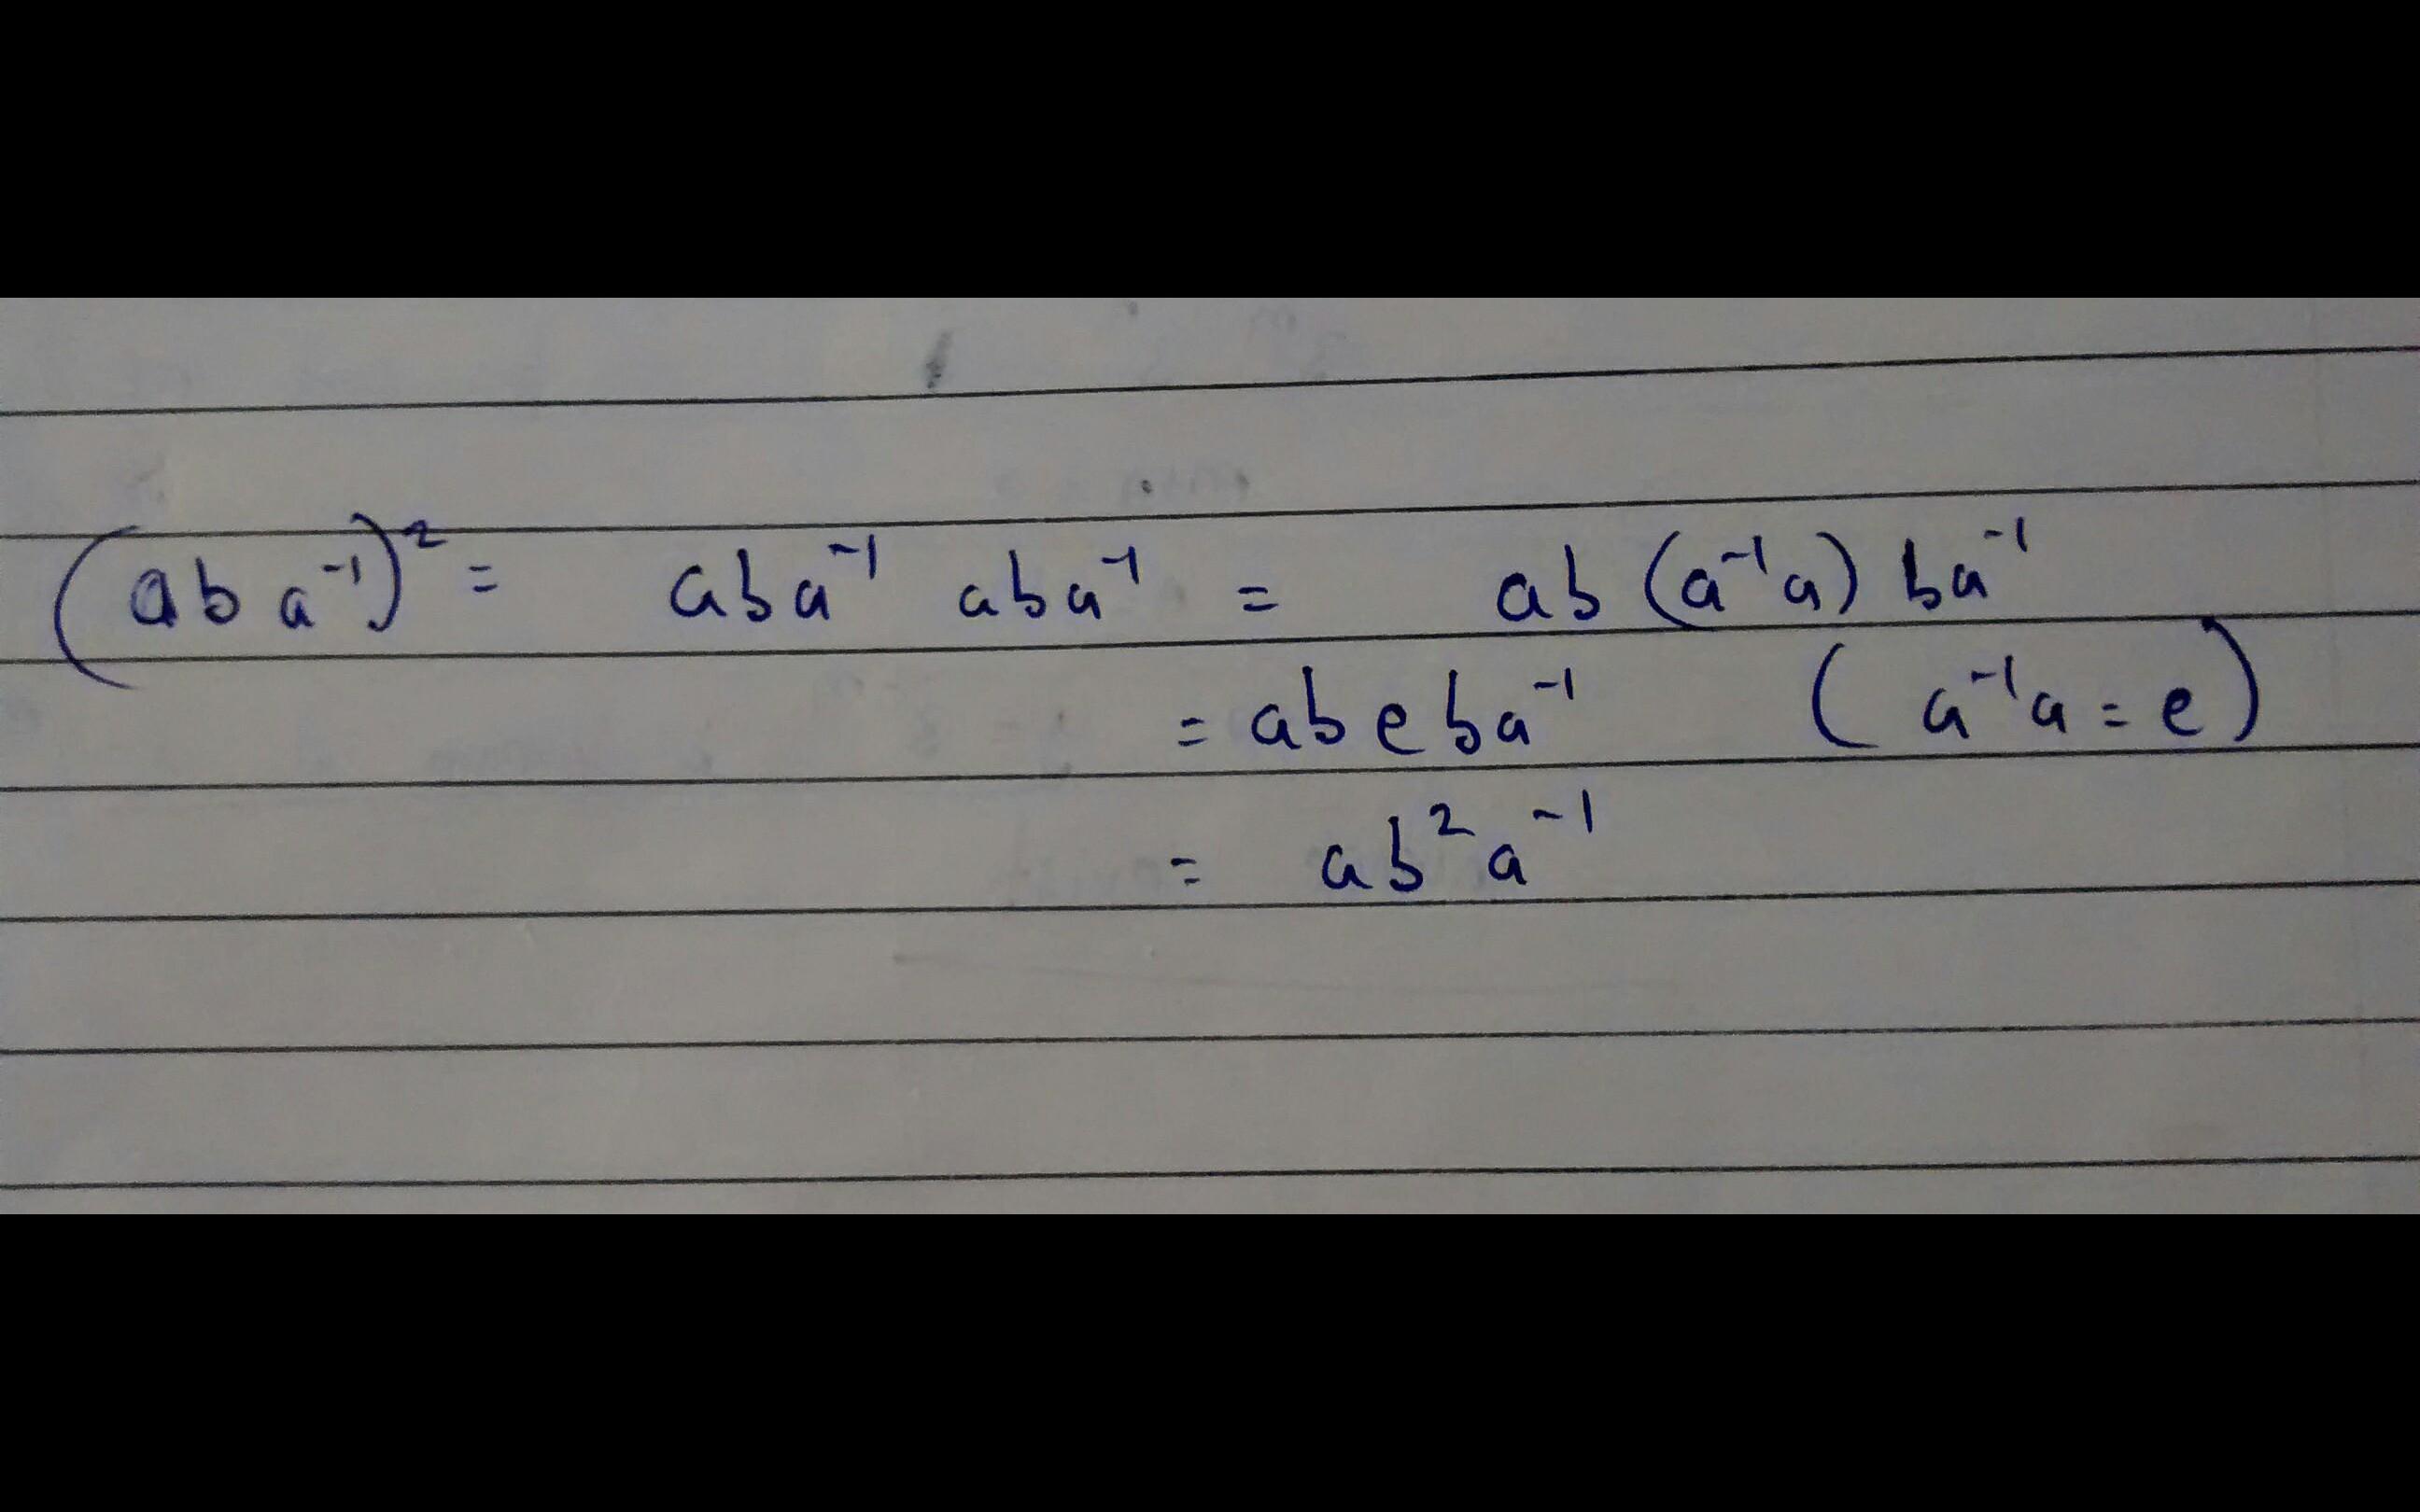 (aba⁻¹)² = aba⁻¹ aba⁻¹ = ab(a⁻¹a)ba⁻¹
= abeba⁻¹ (a⁻¹a = e)
= ab²a⁻¹